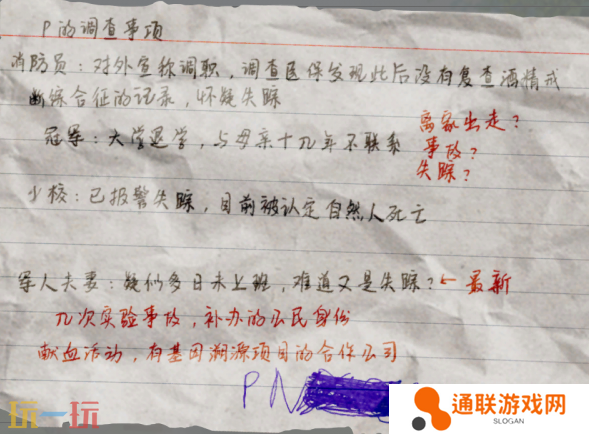 P的调查事项
消防员：对外宣称调职，调查医保发现此后没有复查酒精戒
断综合征的记录，怀疑失踪
冠军：大学退学，与母亲十几年不联系
离家出走？
事故？
失踪？
少校：已报警失踪，目前被认定自然人死亡
军人夫妻：疑似多日未上班，难道又是失踪？←最新
几次实验事故，补办的公民身份
献血活动，有基因溯源项目的合作公司
PN
玩一玩
通联游戏网
SLOGAN